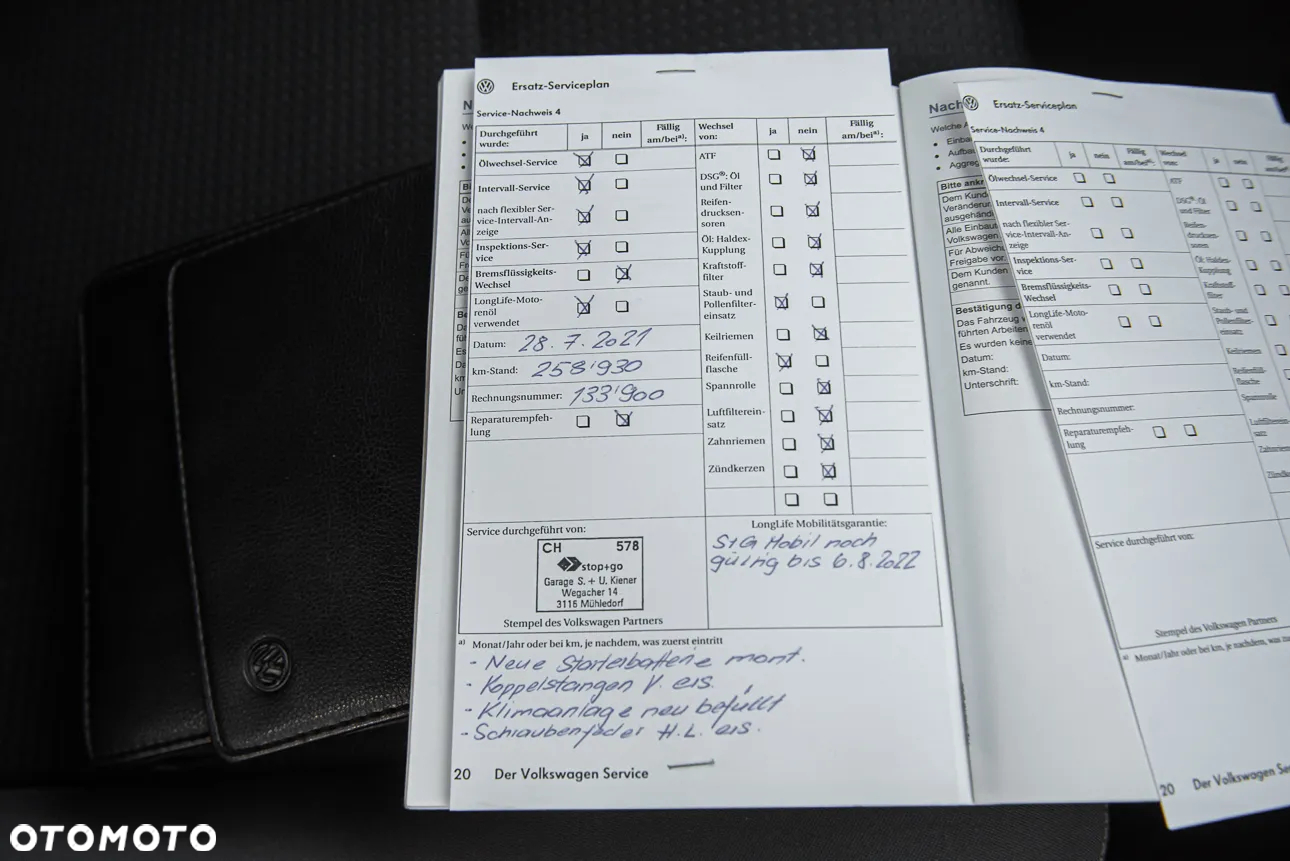 Ersatz-Serviceplan
Service-Nachweis 4
Durchgeführt wurde: ja nein Fällig am/bei a):
Ölwechsel-Service
Intervall-Service
nach flexibler Ser-
vice-Intervall-An-
zeige
Inspektions-Ser-
vice
Bremsflüssigkeits-
Wechsel
LongLife-Moto-
renöl
verwendet
Datum: 28.7.2021
km-Stand: 258'930
Rechnungsnummer: 133'900
Reparaturempfeh-
lung
Wechsel von: ja nein Fällig am/bei a):
ATF
DSG®: Öl
und Filter
Reifen-
drucksen-
soren
Öl: Haldex-
Kupplung
Kraftstoff-
filter
Staub- und
Pollenfilter-
einsatz
Keilriemen
Reifenfüll-
flasche
Spannrolle
Luftfilterein-
satz
Zahnriemen
Zündkerzen
Service durchgeführt von:
CH 578
stop+go
Garage S. + U. Kiener
Wegacher 14
3116 Mühledorf
Stempel des Volkswagen Partners
LongLife Mobilitätsgarantie:
S+G Mobil noch
gültig bis 6.8.2022
a) Monat/Jahr oder bei km, je nachdem, was zuerst eintritt
- Neue Starterbatterie mont.
- Koppelstangen V. ers.
- Klimaanlage neu befüllt
- Schraubenfeder H.L. ers.
20 Der Volkswagen Service
Nach
Welche
Bitte
Dem
ausgehändi
Alle Einbau
Volkswagen
Freigabe vor.
Dem Kunden
genannt.
Bestätigung d
Das Fahrzeug
führten Arbeiten
Es wurden keine
Datum:
km-Stand:
Unterschrift:
Ersatz-Serviceplan
Service-Nachweis 4
Durchgeführt wurde: ja nein Fällig am/bei a):
Ölwechsel-Service
Intervall-Service
nach flexibler Ser-
vice-Intervall-An-
zeige
Inspektions-Ser-
vice
Bremsflüssigkeits-
Wechsel
LongLife-Moto-
renöl
verwendet
Datum:
km-Stand:
Rechnungsnummer:
Reparaturempfeh-
lung
Wechsel von: ja nein Fällig
ATF
DSG®: Öl
und Filter
Reifen-
drucksen-
soren
Öl: Haldex-
Kupplung
Kraftstoff-
filter
Staub- und
Pollenfilter-
einsatz
Keilriemen
Reifenfüll-
flasche
Spannrolle
Service durchgeführt von:
Stempel des Volkswagen Partners
a) Monat/Jahr oder bei km, je nachdem, was
20 Der Volkswagen
OTOMOTO